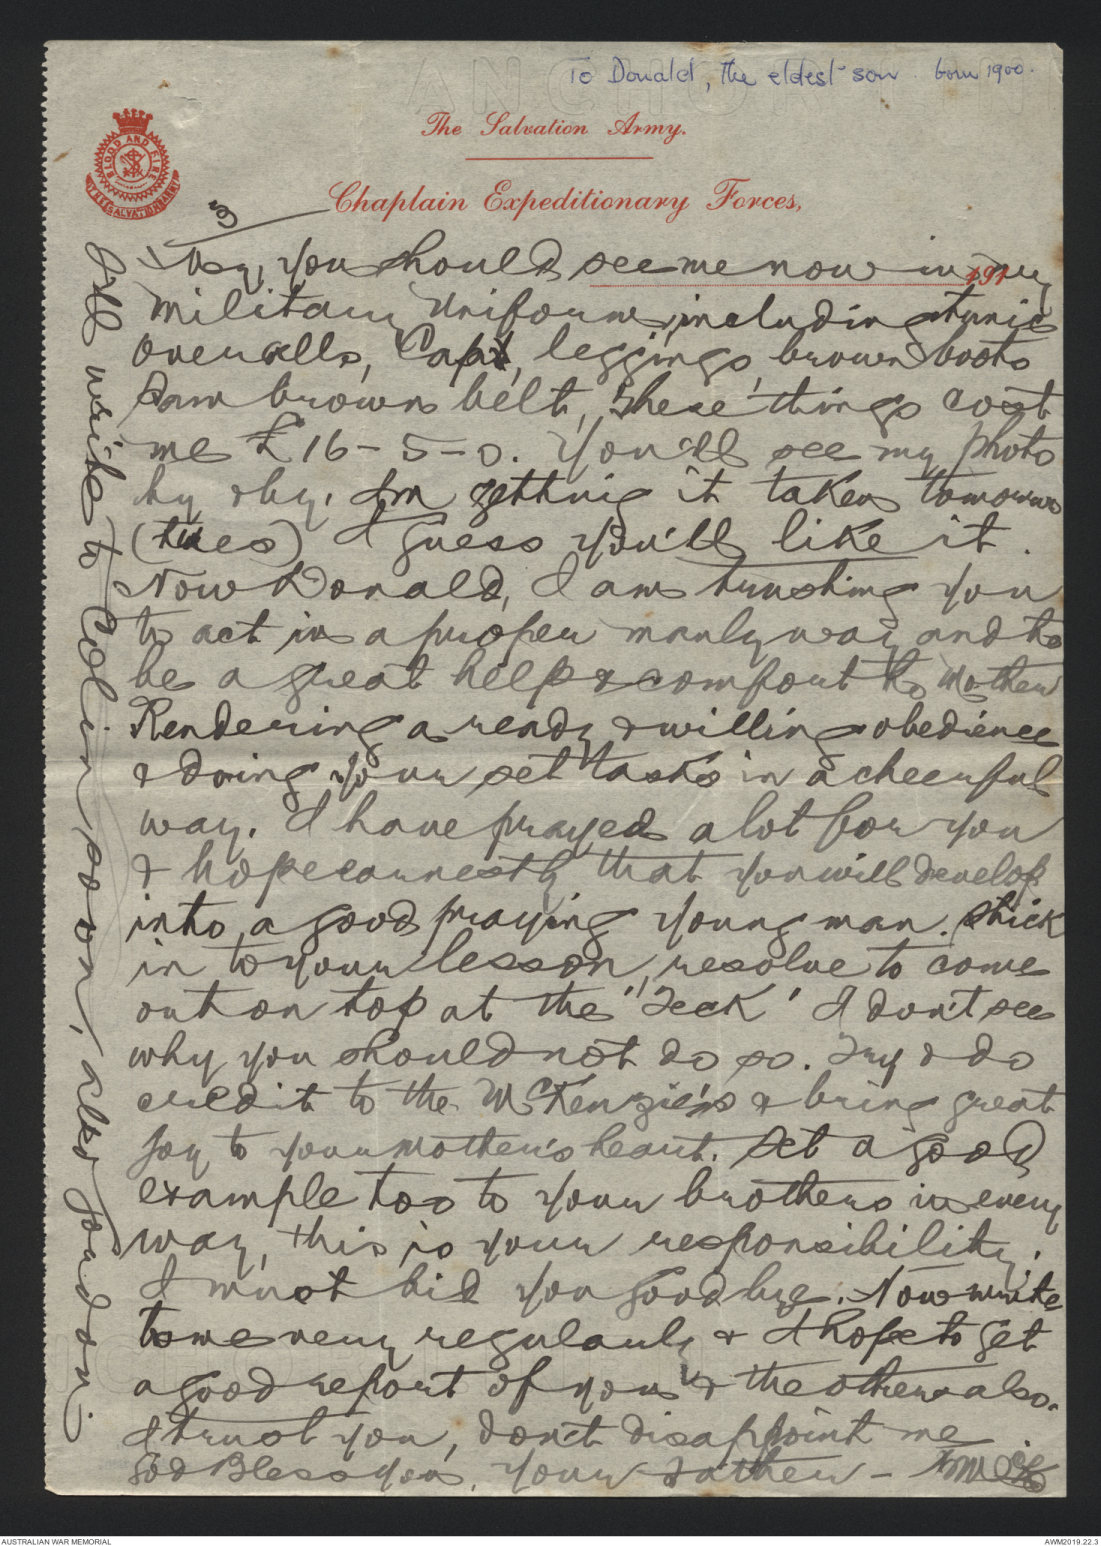 To Donald, the eldest son. born 1900.
The Salvation Army.
Chaplain Expeditionary Forces,
BLOOD AND FIRE
THE SALVATION ARMY
191
My, you should see me now in my
military uniform, including tunic
overalls, Cap, leggings, brown boots
Sam brown belt, these things cost
me £16-5-0. You'll see my photo
by & by. I'm getting it taken tomorrow
(tues) I guess you'll like it.
Now Donald, I am trusting you
to act in a proper manly way and to
be a great help & comfort to Mother
Rendering a ready & willing obedience
& doing your set tasks in a cheerful
way. I have prayed a lot for you
& hope earnestly that you will develop
into a good praying young man. Stick
in to your lesson, resolve to come
out on top at the "Teck" I don't see
why you should not do so. Try & do
credit to the McKenzie's & bring great
joy to your mother's heart. Set a good
example too to your brothers in every
way, this is your responsibility.
I must bid you goodbye. Now write
to me very regularly & I hope to get
a good report of you & the others also.
I trust you, don't disappoint me
God Bless you, your Father - WMcK
I'll write to Colin soon, also Gordon.
AUSTRALIAN WAR MEMORIAL
AWM2019.22.3